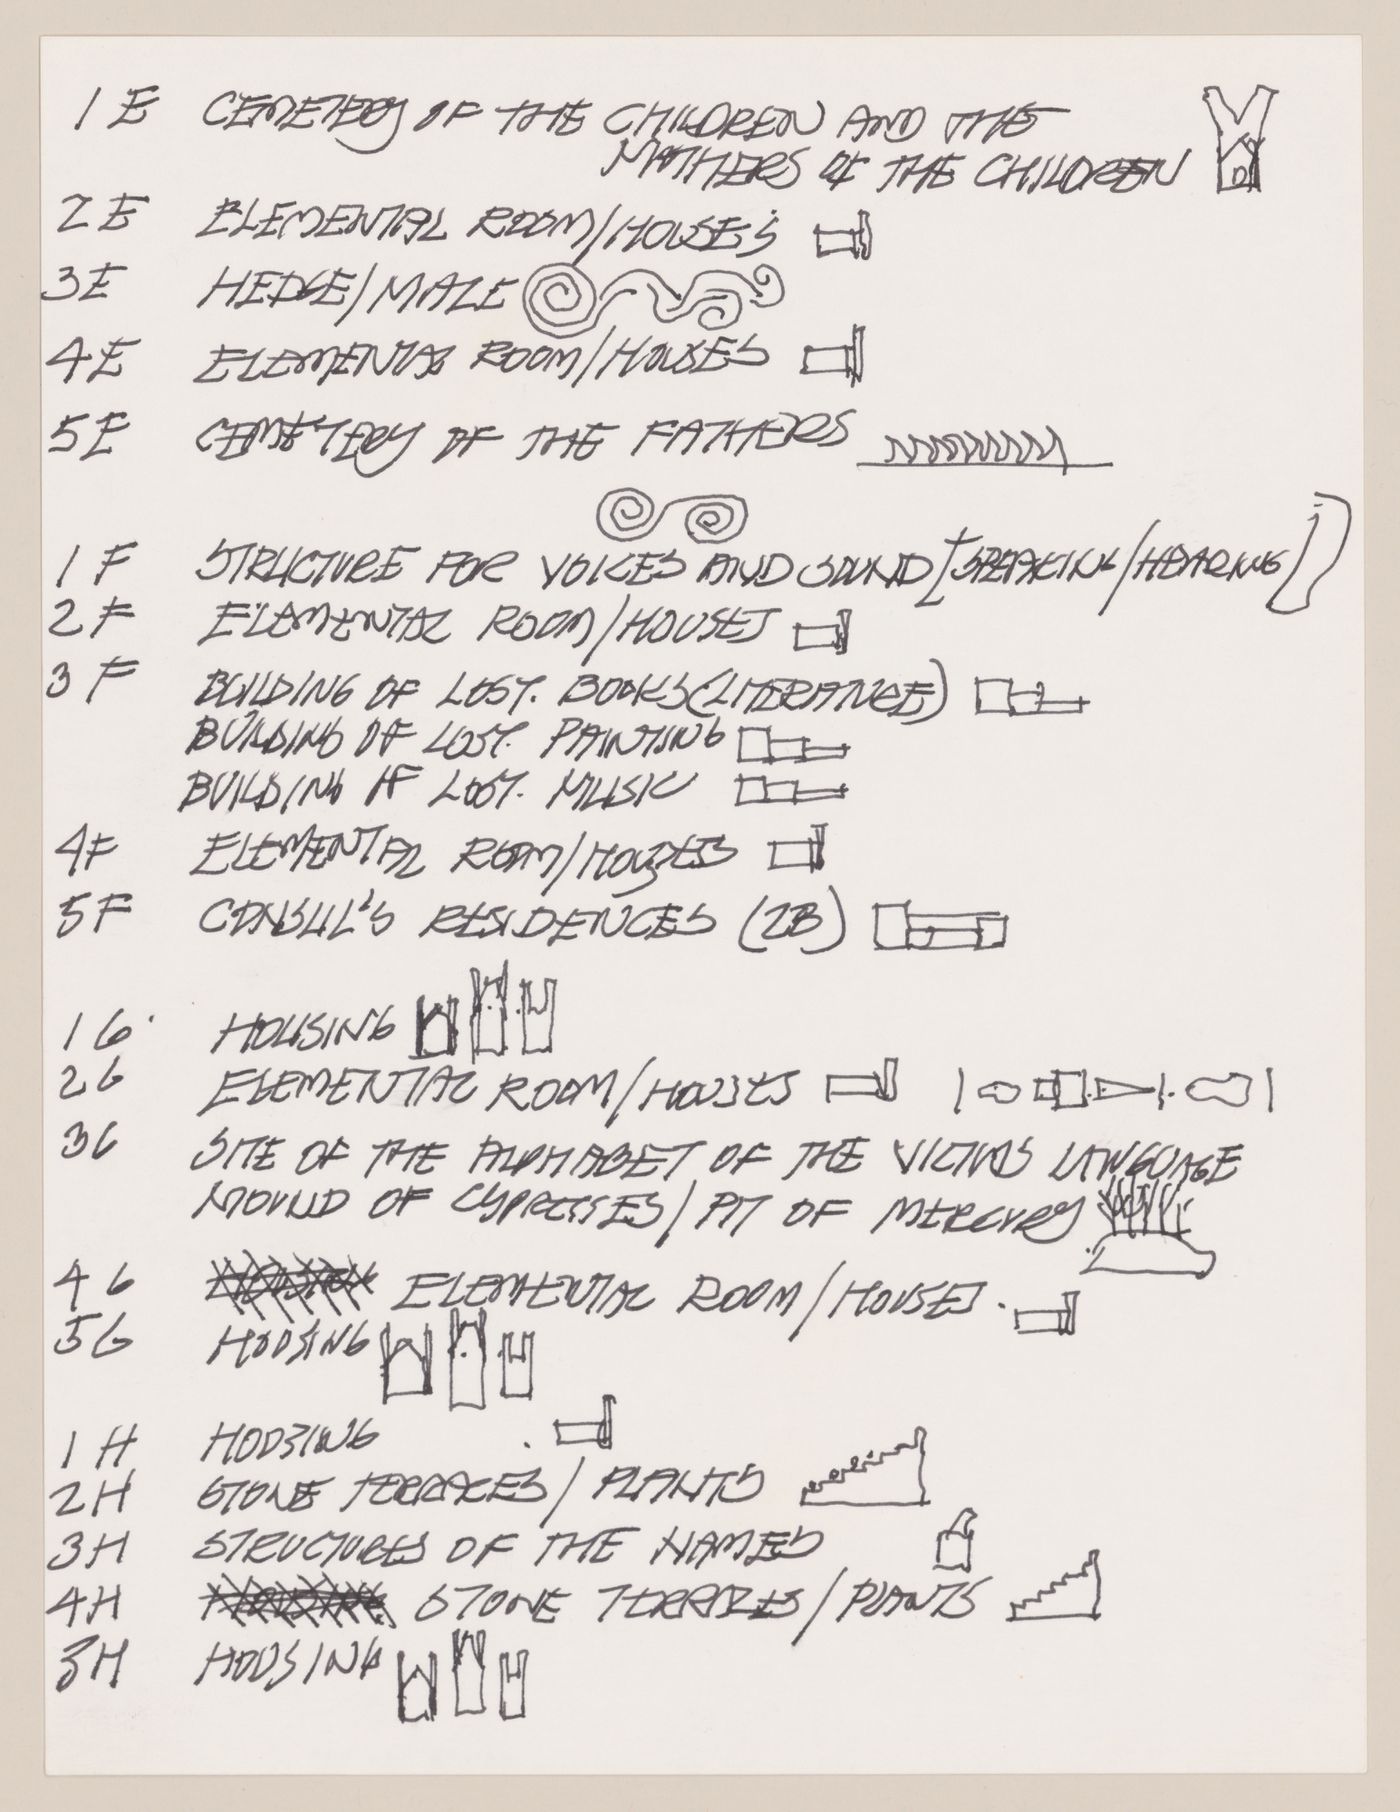 1 E CEMETERY OF THE CHILDREN AND THE
MOTHERS OF THE CHILDREN
2 E ELEMENTAL ROOM/HOUSES
3 E HEDGE/MAZE
4 E ELEMENTAL ROOM/HOUSES
5 E CEMETERY OF THE FATHERS
1 F STRUCTURE FOR VOICES AND SOUND [SPEAKING/HEARING]
2 F ELEMENTAL ROOM/HOUSES
3 F BUILDING OF LOST. BOOKS (LITERATURE)
BUILDING OF LOST. PAINTING
BUILDING OF LOST. MUSIC
4 F ELEMENTAL ROOM/HOUSES
5 F CONSUL'S RESIDENCES (2B)
1 G HOUSING
2 G ELEMENTAL ROOM/HOUSES
3 G SITE OF THE ALPHABET OF THE VICTIMS LANGUAGE
MOUND OF CYPRESSES/PIT OF MERCURY
4 G ELEMENTAL ROOM/HOUSES.
5 G HOUSING
1 H HOUSING
2 H STONE TERRACES/PLANTS
3 H STRUCTURES OF THE NAMES
4 H STONE TERRACES/PLANTS
5 H HOUSING